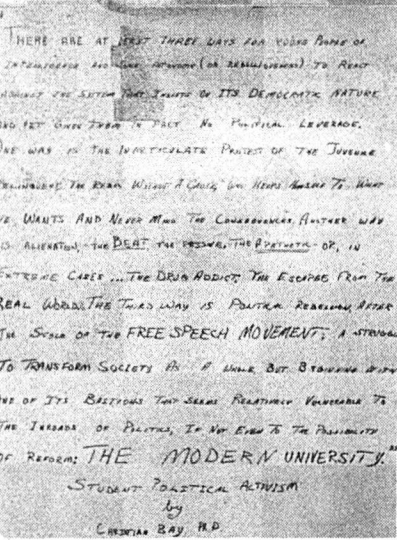 THERE ARE AT LEAST THREE WAYS FOR YOUNG PEOPLE OF
INTELLIGENCE AND AUTONOMY (OR REBELLIOUSNESS) TO REACT
AGAINST THE SYSTEM THAT INSISTS OF ITS DEMOCRATIC NATURE
AND YET GIVES THEM IN FACT NO POLITICAL LEVERAGE.
ONE WAY IS THE INARTICULATE PROTEST OF THE JUVENILE
DELINQUENT, THE REBEL WITHOUT A CAUSE, WHO HELPS HIMSELF TO WHAT
HE WANTS AND NEVER MIND THE CONSEQUENCES. ANOTHER WAY
IS ALIENATION, - THE BEAT, THE PASSIVE, THE APATHETIC - OR, IN
EXTREME CASES ... THE DRUG ADDICT, THE ESCAPEE FROM THE
REAL WORLD. THE THIRD WAY IS POLITICAL REBELLION, AFTER
THE STYLE OF THE FREE SPEECH MOVEMENT; A STRUGGLE
TO TRANSFORM SOCIETY AS A WHOLE BUT BEGINNING WITH
ONE OF ITS BASTIONS THAT SEEMS RELATIVELY VULNERABLE TO
THE INROADS OF POLITICS, IF NOT EVEN TO THE POSSIBILITY
OF REFORM: THE MODERN UNIVERSITY."
STUDENT POLITICAL ACTIVISM
by
CHRISTIAN BAY PH.D